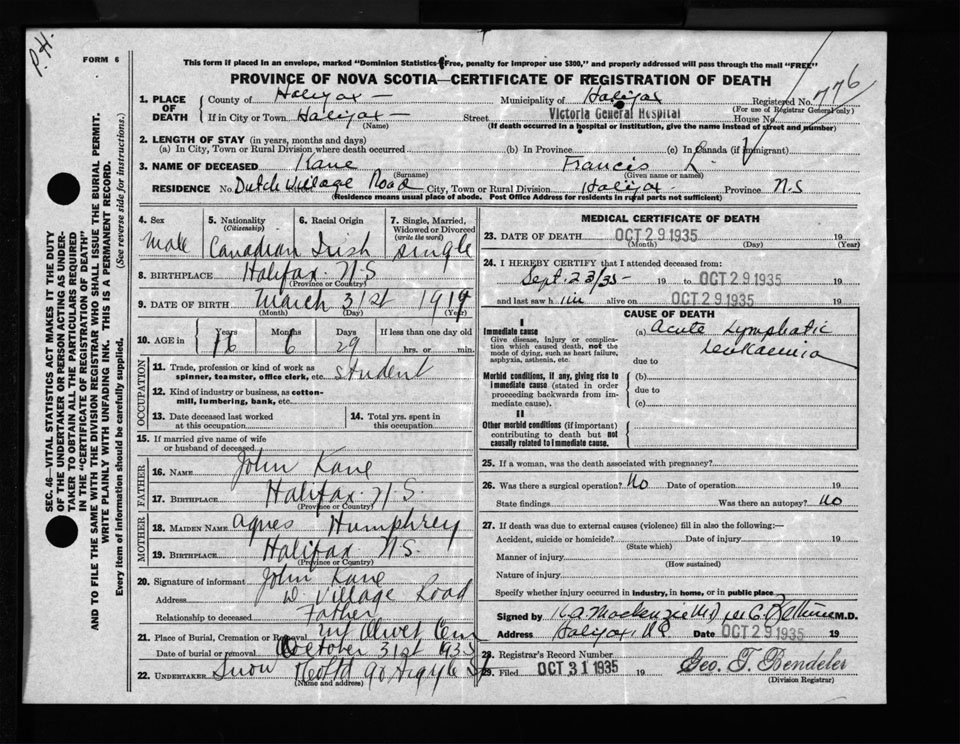 P.H.
FORM 6
This form if placed in an envelope, marked "Dominion Statistics—Free, penalty for improper use $300," and properly addressed will pass through the mail "FREE"
PROVINCE OF NOVA SCOTIA—CERTIFICATE OF REGISTRATION OF DEATH
776
1. PLACE OF DEATH
County of Halifax — Municipality of Halifax Registered No.
(For use of Registrar General only)
If in City or Town Halifax — Street Victoria General Hospital House No.
(Name) (If death occurred in a hospital or institution, give the name instead of street and number)
2. LENGTH OF STAY (in years, months and days)
(a) In City, Town or Rural Division where death occurred (b) In Province (c) In Canada (if immigrant)
3. NAME OF DECEASED Kane Francis L.
(Surname) (Given name or names)
RESIDENCE No. Dutch Village Road City, Town or Rural Division Halifax Province N.S
(Residence means usual place of abode. Post Office Address for residents in rural parts not sufficient)
SEC. 46—VITAL STATISTICS ACT MAKES IT THE DUTY
OF THE UNDERTAKER OR PERSON ACTING AS UNDER-
TAKER TO OBTAIN ALL THE PARTICULARS REQUIRED
IN THE "CERTIFICATE OF REGISTRATION OF DEATH"
AND TO FILE THE SAME WITH THE DIVISION REGISTRAR WHO SHALL ISSUE THE BURIAL PERMIT.
WRITE PLAINLY WITH UNFADING INK. THIS IS A PERMANENT RECORD.
Every item of information should be carefully supplied. (See reverse side for instructions.)
4. Sex 5. Nationality 6. Racial Origin 7. Single, Married,
(Citizenship) Widowed or Divorced
(write the word)
Male Canadian Irish Single
8. BIRTHPLACE Halifax N.S
(Province or Country)
9. DATE OF BIRTH March 31st 1919
(Month) (Day) (Year)
10. AGE in Years Months Days If less than one day old
16 6 29 hrs. or min.
OCCUPATION
11. Trade, profession or kind of work as
spinner, teamster, office clerk, etc. Student
12. Kind of industry or business, as cotton-
mill, lumbering, bank, etc.
13. Date deceased last worked
at this occupation
14. Total yrs. spent in
this occupation
15. If married give name of wife
or husband of deceased
FATHER
16. NAME John Kane
17. BIRTHPLACE Halifax N.S.
(Province or Country)
MOTHER
18. MAIDEN NAME Agnes Humphrey
19. BIRTHPLACE Halifax N.S.
(Province or Country)
20. Signature of informant John Kane
Address D. Village Road
Relationship to deceased Father
21. Place of Burial, Cremation or Removal Mt Olivet Cem
Date of burial or removal October 31st 1935
22. UNDERTAKER Snow 90 Argyle St
(Name and address)
MEDICAL CERTIFICATE OF DEATH
23. DATE OF DEATH OCT 29 1935 19
(Month) (Day) (Year)
24. I HEREBY CERTIFY that I attended deceased from:
Sept. 23/35 19 to OCT 29 1935 19
and last saw him alive on OCT 29 1935 19
CAUSE OF DEATH
I
Immediate cause
Give disease, injury or complica-
tion which caused death, not the
mode of dying, such as heart failure,
asphyxia, asthenia, etc.
(a) Acute Lymphatic
Leukaemia
due to
Morbid conditions, if any, giving rise to
immediate cause (stated in order
proceeding backwards from im-
mediate cause).
(b)
due to
(c)
II
Other morbid conditions (if important)
contributing to death but not
causally related to immediate cause.
25. If a woman, was the death associated with pregnancy?
26. Was there a surgical operation? No Date of operation 19
State findings Was there an autopsy? No
27. If death was due to external causes (violence) fill in also the following:—
Accident, suicide or homicide? Date of injury 19
(State which)
Manner of injury
(How sustained)
Nature of injury
Specify whether injury occurred in industry, in home, or in public place
Signed by K.A. Mackenzie M.D. M.D.
Address Halifax, N.S. Date OCT 29 1935 19
28. Registrar's Record Number
29. Filed OCT 31 1935 19 Geo. T. Bendeler
(Division Registrar)